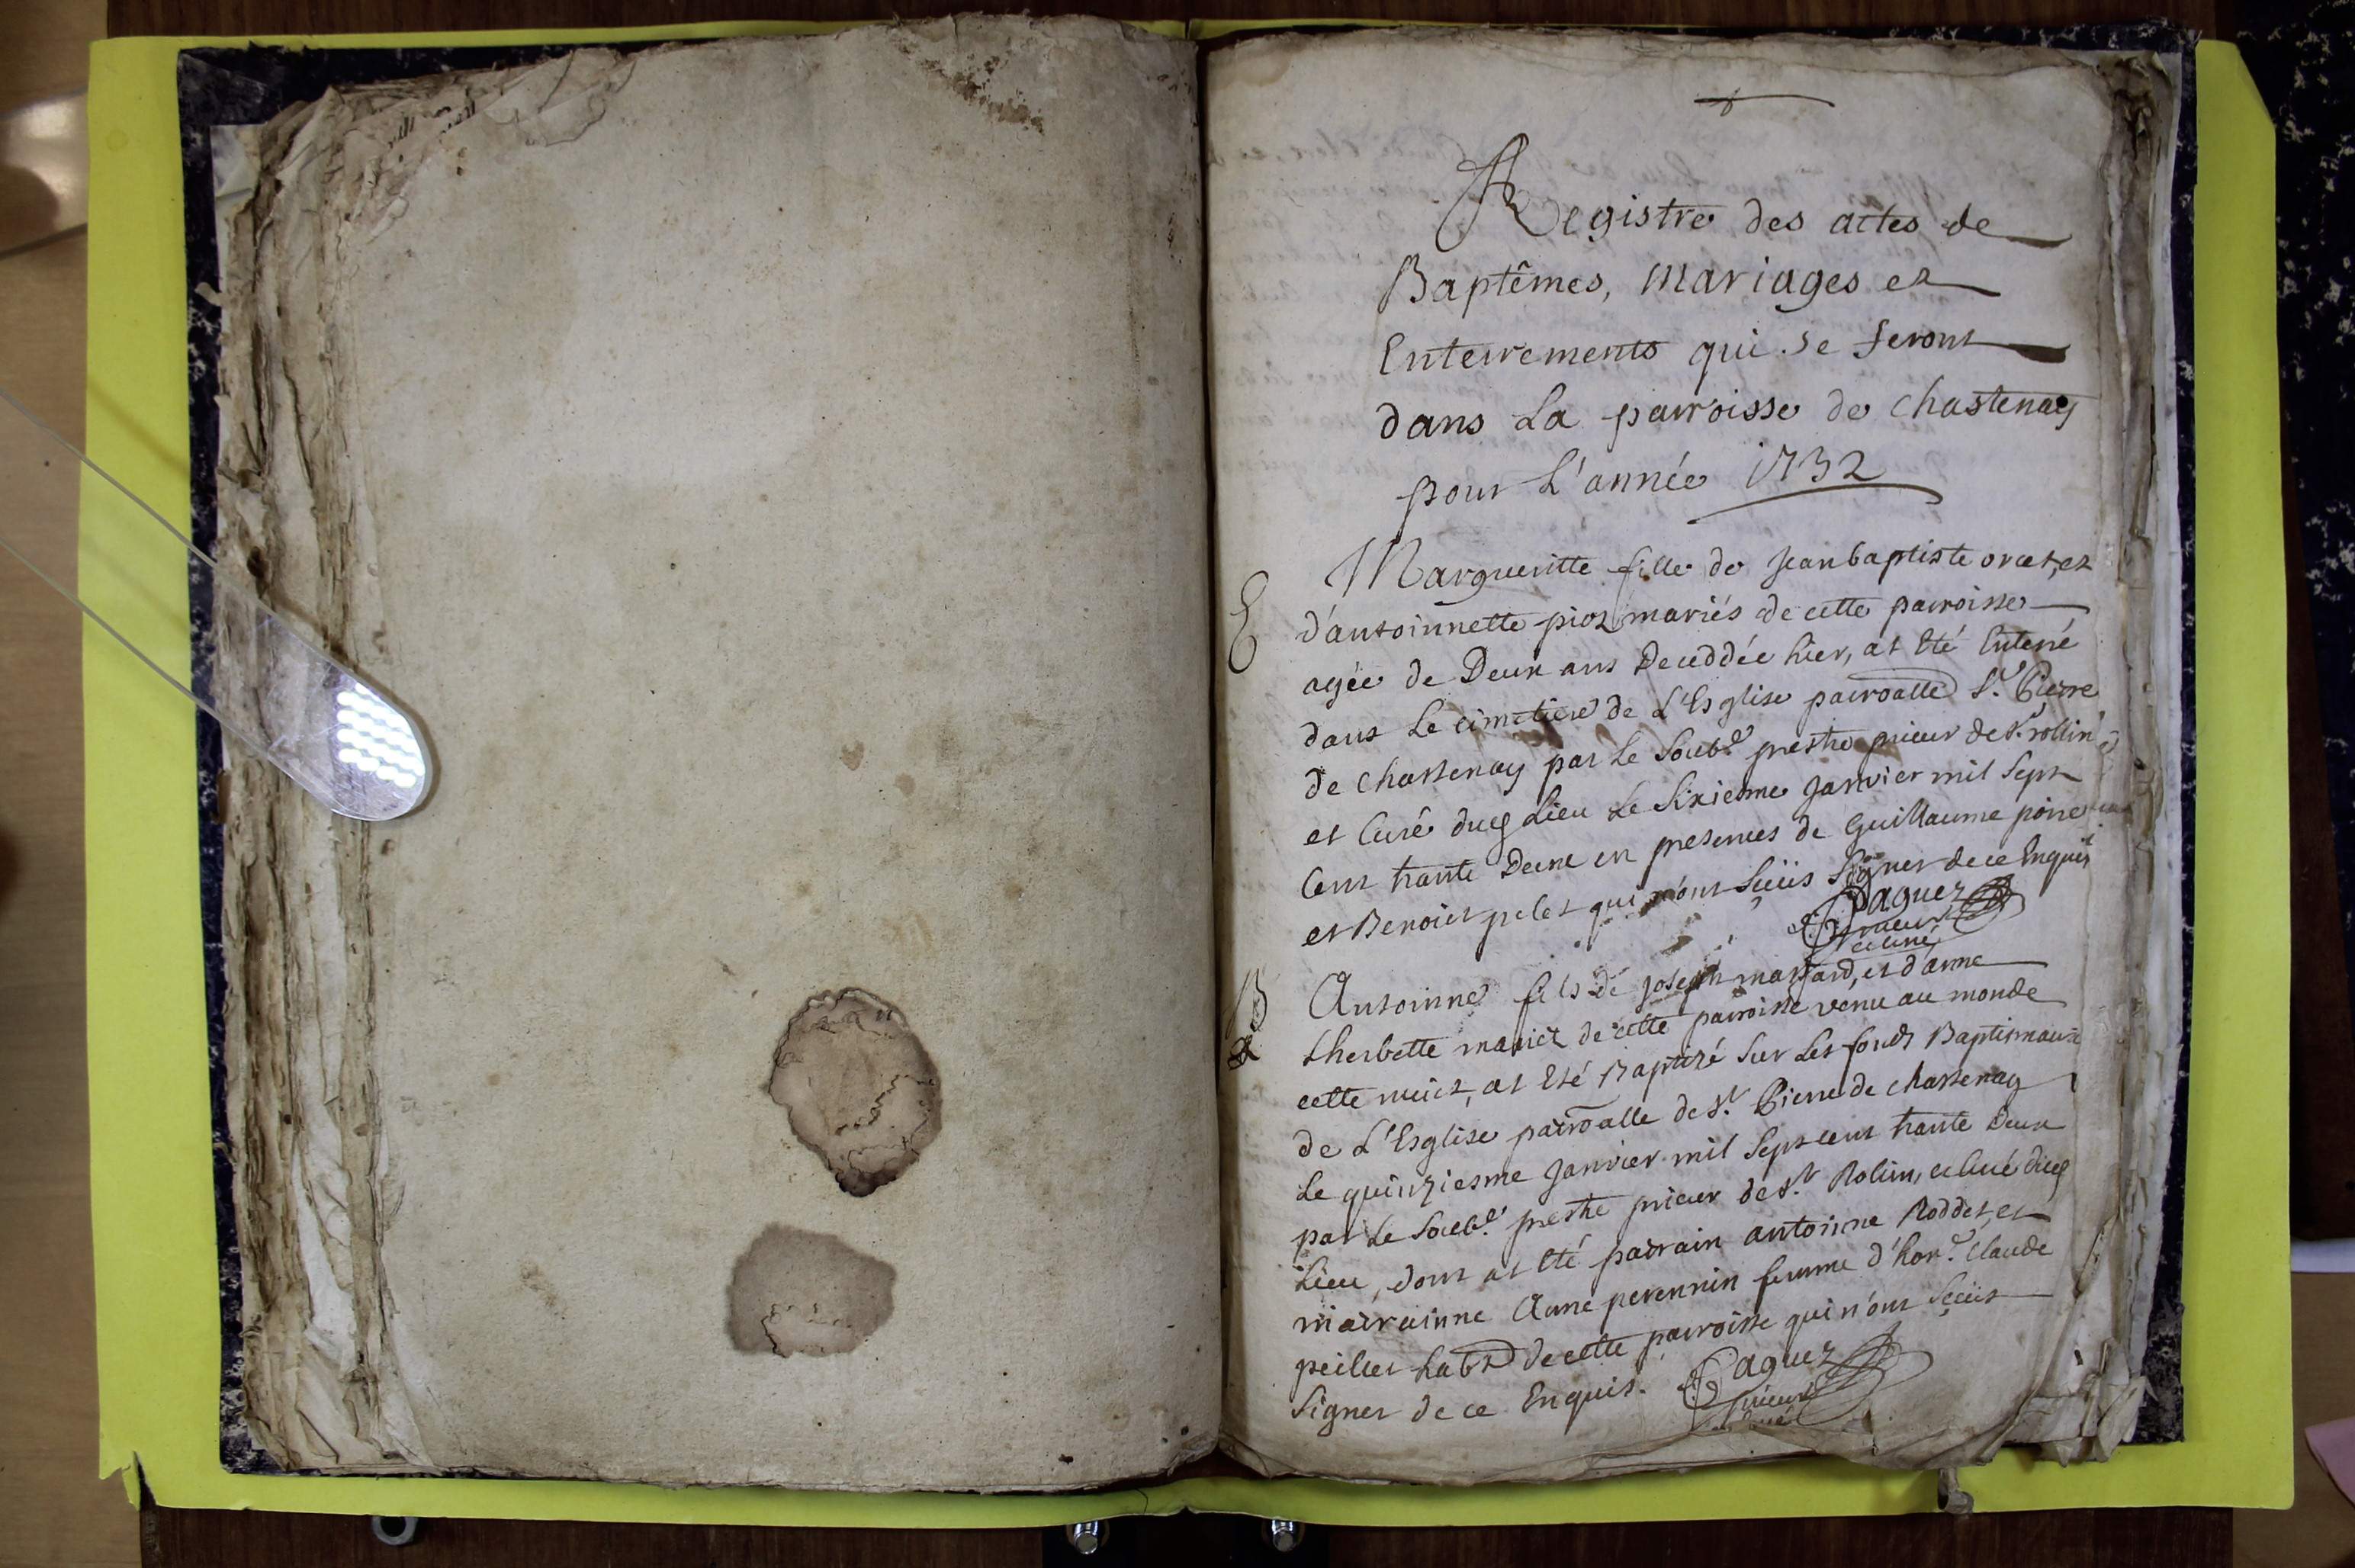 Registre des actes de
Baptêmes, Mariages et
Enterrements qui se feront
dans La parroisse de Chastenay
pour L'année 1732
E
Margueritte fille de Jean baptiste oret, et
d'antoinnette piot mariés de cette parroisse
agée de Deux ans Deceddée hier, at Eté Enterré
dans Le cimetiere de L'Esglise parroalle St. Pierre
de Chastenay par Le Soubé. prestre prieur de St. rollin
et Curé ducq Lieu Le Sixiesme Janvier mil Sept
Cent trante Deux en presences de Guillaume
et Benoict pelet qui n'ont Sçeüs Signer de ce Enquis
Paguez
prieur
et curé
B
Antoinne fils de Joseph massard, et d'anne
therbette mariez de cette parroisse venu au monde
cette nuict, at Eté Baptizé Sur Les fonds Baptismaux
de L'Esglise parroalle de St. Pierre de Chastenay
Le quinziesme Janvier mil Sept cent trante Deux
par Le Soubé. prestre prieur de St. Rolin, et Curé ducq
Lieu, dont at Eté parrain antoinne Roddet, et
marrainne Anne perennin femme d'hon. Claude
peillet habt de cette parroisse qui n'ont Sçeüs
Signer de ce Enquis.
Paguez
prieur
curé